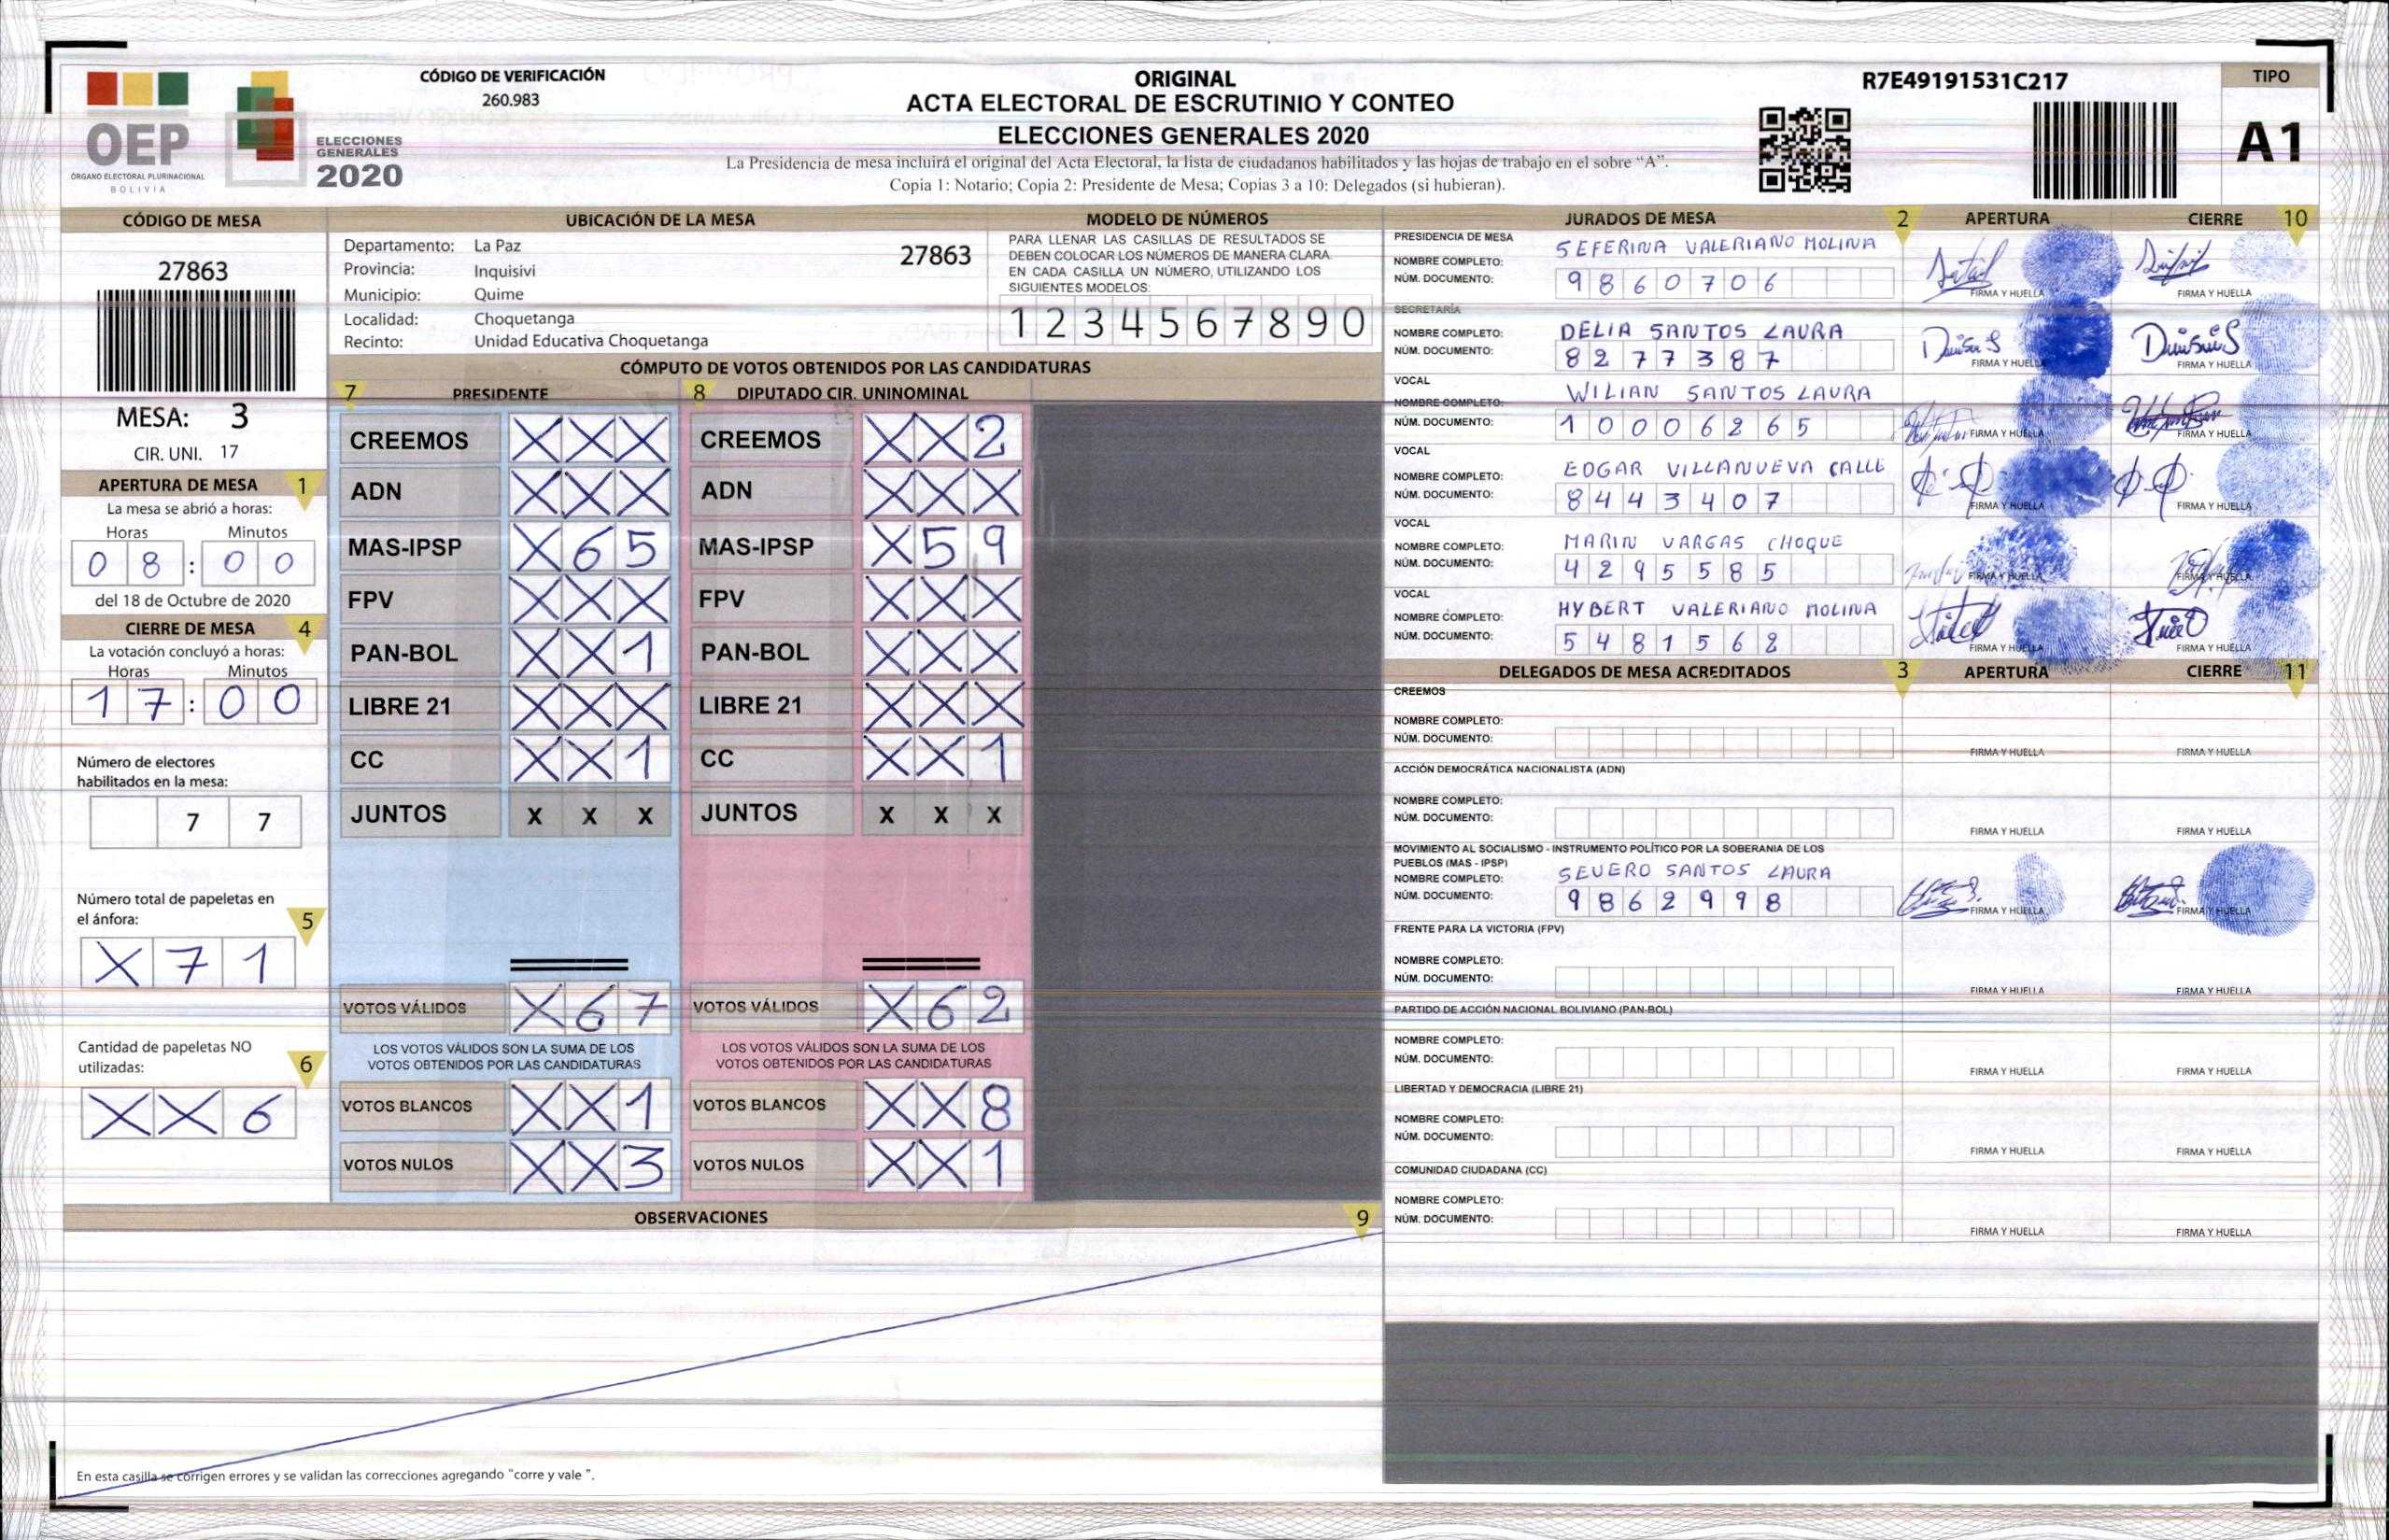 OEP
ÓRGANO ELECTORAL PLURINACIONAL
BOLIVIA
ELECCIONES
GENERALES
2020
CÓDIGO DE VERIFICACIÓN
260.983
ORIGINAL
ACTA ELECTORAL DE ESCRUTINIO Y CONTEO
ELECCIONES GENERALES 2020
La Presidencia de mesa incluirá el original del Acta Electoral, la lista de ciudadanos habilitados y las hojas de trabajo en el sobre “A”.
Copia 1: Notario; Copia 2: Presidente de Mesa; Copias 3 a 10: Delegados (si hubieran).
R7E49191531C217
TIPO
A1
CÓDIGO DE MESA
27863
MESA: 3
CIR. UNI. 17
APERTURA DE MESA 1
La mesa se abrió a horas:
Horas Minutos
0 8 : 0 0
del 18 de Octubre de 2020
CIERRE DE MESA 4
La votación concluyó a horas:
Horas Minutos
1 7 : 0 0
Número de electores
habilitados en la mesa:
7 7
Número total de papeletas en
el ánfora: 5
X 7 1
Cantidad de papeletas NO
utilizadas: 6
X X 6
UBICACIÓN DE LA MESA
Departamento: La Paz 27863
Provincia: Inquisivi
Municipio: Quime
Localidad: Choquetanga
Recinto: Unidad Educativa Choquetanga
MODELO DE NÚMEROS
PARA LLENAR LAS CASILLAS DE RESULTADOS SE
DEBEN COLOCAR LOS NÚMEROS DE MANERA CLARA.
EN CADA CASILLA UN NÚMERO, UTILIZANDO LOS
SIGUIENTES MODELOS:
1 2 3 4 5 6 7 8 9 0
CÓMPUTO DE VOTOS OBTENIDOS POR LAS CANDIDATURAS
7 PRESIDENTE 8 DIPUTADO CIR. UNINOMINAL
CREEMOS X X X CREEMOS X X 2
ADN X X X ADN X X X
MAS-IPSP X 6 5 MAS-IPSP X 5 9
FPV X X X FPV X X X
PAN-BOL X X 1 PAN-BOL X X X
LIBRE 21 X X X LIBRE 21 X X X
CC X X 1 CC X X 1
JUNTOS X X X JUNTOS X X X
VOTOS VÁLIDOS X 6 7 VOTOS VÁLIDOS X 6 2
LOS VOTOS VÁLIDOS SON LA SUMA DE LOS LOS VOTOS VÁLIDOS SON LA SUMA DE LOS
VOTOS OBTENIDOS POR LAS CANDIDATURAS VOTOS OBTENIDOS POR LAS CANDIDATURAS
VOTOS BLANCOS X X 1 VOTOS BLANCOS X X 8
VOTOS NULOS X X 3 VOTOS NULOS X X 1
OBSERVACIONES 9
En esta casilla se corrigen errores y se validan las correcciones agregando "corre y vale ".
JURADOS DE MESA 2 APERTURA CIERRE 10
PRESIDENCIA DE MESA
NOMBRE COMPLETO: SEFERINA VALERIANO MOLINA
NÚM. DOCUMENTO: 9 8 6 0 7 0 6 FIRMA Y HUELLA FIRMA Y HUELLA
SECRETARÍA
NOMBRE COMPLETO: DELIA SANTOS LAURA
NÚM. DOCUMENTO: 8 2 7 7 3 8 7 FIRMA Y HUELLA FIRMA Y HUELLA
VOCAL
NOMBRE COMPLETO: WILIAN SANTOS LAURA
NÚM. DOCUMENTO: 1 0 0 0 6 2 6 5 FIRMA Y HUELLA FIRMA Y HUELLA
VOCAL
NOMBRE COMPLETO: EDGAR VILLANUEVA CALLE
NÚM. DOCUMENTO: 8 4 4 3 4 0 7 FIRMA Y HUELLA FIRMA Y HUELLA
VOCAL
NOMBRE COMPLETO: MARIN VARGAS CHOQUE
NÚM. DOCUMENTO: 4 2 9 5 5 8 5 FIRMA Y HUELLA FIRMA Y HUELLA
VOCAL
NOMBRE COMPLETO: HYBERT VALERIANO MOLINA
NÚM. DOCUMENTO: 5 4 8 1 5 6 2 FIRMA Y HUELLA FIRMA Y HUELLA
DELEGADOS DE MESA ACREDITADOS 3 APERTURA CIERRE 11
CREEMOS
NOMBRE COMPLETO:
NÚM. DOCUMENTO: FIRMA Y HUELLA FIRMA Y HUELLA
ACCIÓN DEMOCRÁTICA NACIONALISTA (ADN)
NOMBRE COMPLETO:
NÚM. DOCUMENTO: FIRMA Y HUELLA FIRMA Y HUELLA
MOVIMIENTO AL SOCIALISMO - INSTRUMENTO POLÍTICO POR LA SOBERANIA DE LOS
PUEBLOS (MAS - IPSP)
NOMBRE COMPLETO: SEVERO SANTOS LAURA
NÚM. DOCUMENTO: 9 8 6 2 9 9 8 FIRMA Y HUELLA FIRMA Y HUELLA
FRENTE PARA LA VICTORIA (FPV)
NOMBRE COMPLETO:
NÚM. DOCUMENTO: FIRMA Y HUELLA FIRMA Y HUELLA
PARTIDO DE ACCIÓN NACIONAL BOLIVIANO (PAN-BOL)
NOMBRE COMPLETO:
NÚM. DOCUMENTO: FIRMA Y HUELLA FIRMA Y HUELLA
LIBERTAD Y DEMOCRACIA (LIBRE 21)
NOMBRE COMPLETO:
NÚM. DOCUMENTO: FIRMA Y HUELLA FIRMA Y HUELLA
COMUNIDAD CIUDADANA (CC)
NOMBRE COMPLETO:
NÚM. DOCUMENTO: FIRMA Y HUELLA FIRMA Y HUELLA